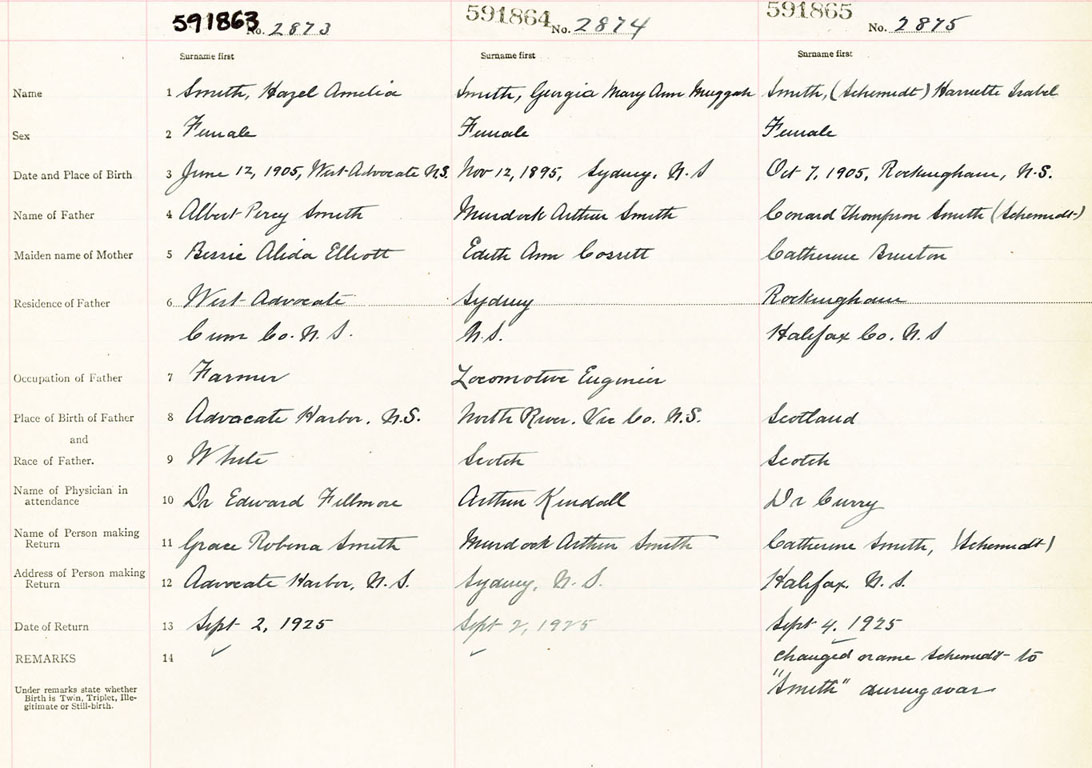 591863 No. 2873 591864 No. 2874 591865 No. 2875
Surname first Surname first Surname first
Name 1 Smith, Hazel Amelia Smith, Georgia Mary Ann Muggah Smith, (Schemedt) Harriette Isabel
Sex 2 Female Female Female
Date and Place of Birth 3 June 12, 1905, West Advocate N.S. Nov 12, 1895, Sydney, N.S Oct 7, 1905, Rockingham, N.S.
Name of Father 4 Albert Percy Smith Murdock Arthur Smith Conard Thompson Smith (Schemedt)
Maiden name of Mother 5 Bessie Alida Elliott Edith Ann Cossitt Catherine Brunton
Residence of Father 6 West Advocate Sydney Rockingham
Cum Co. N.S. N.S. Halifax Co. N.S
Occupation of Father 7 Farmer Locomotive Engineer
Place of Birth of Father 8 Advocate Harbor, N.S. North River, Vic Co. N.S. Scotland
and
Race of Father. 9 White Scotch Scotch
Name of Physician in
attendance 10 Dr Edward Fillmore Arthur Kendall Dr Curry
Name of Person making
Return 11 Grace Robena Smith Murdock Arthur Smith Catherine Smith, (Schemedt)
Address of Person making
Return 12 Advocate Harbor, N.S. Sydney, N.S. Halifax, N.S.
Date of Return 13 Sept 2, 1925 Sept 2, 1925 Sept 4, 1925
REMARKS 14 changed name Schemedt to
"Smith" during war
Under remarks state whether
Birth is Twin, Triplet, Ille-
gitimate or Still-birth.